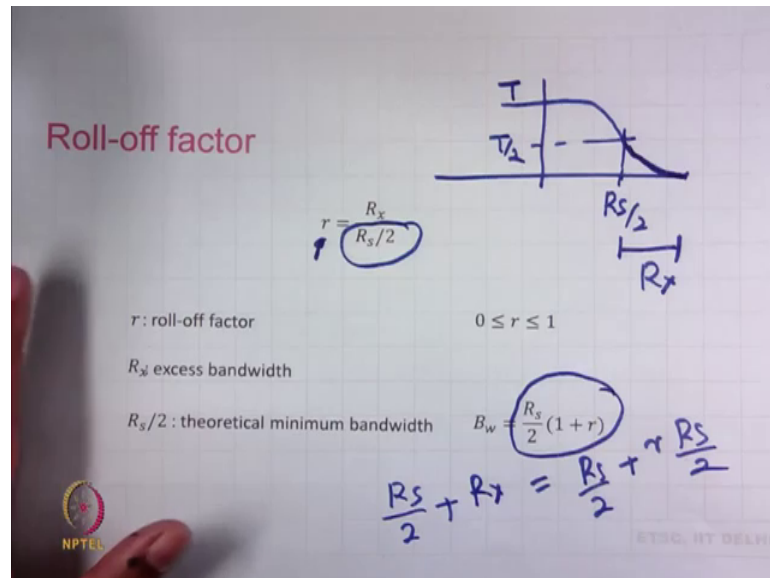 T
Roll-off factor
T/2
Rs/2
Rx
r = R_x / (R_s/2)
r : roll-off factor
0 ≤ r ≤ 1
R_x: excess bandwidth
R_s/2 : theoretical minimum bandwidth
B_w = R_s/2 (1 + r)
Rs/2 + Rx = Rs/2 + r Rs/2
NPTEL
ETSC, IIT DELHI